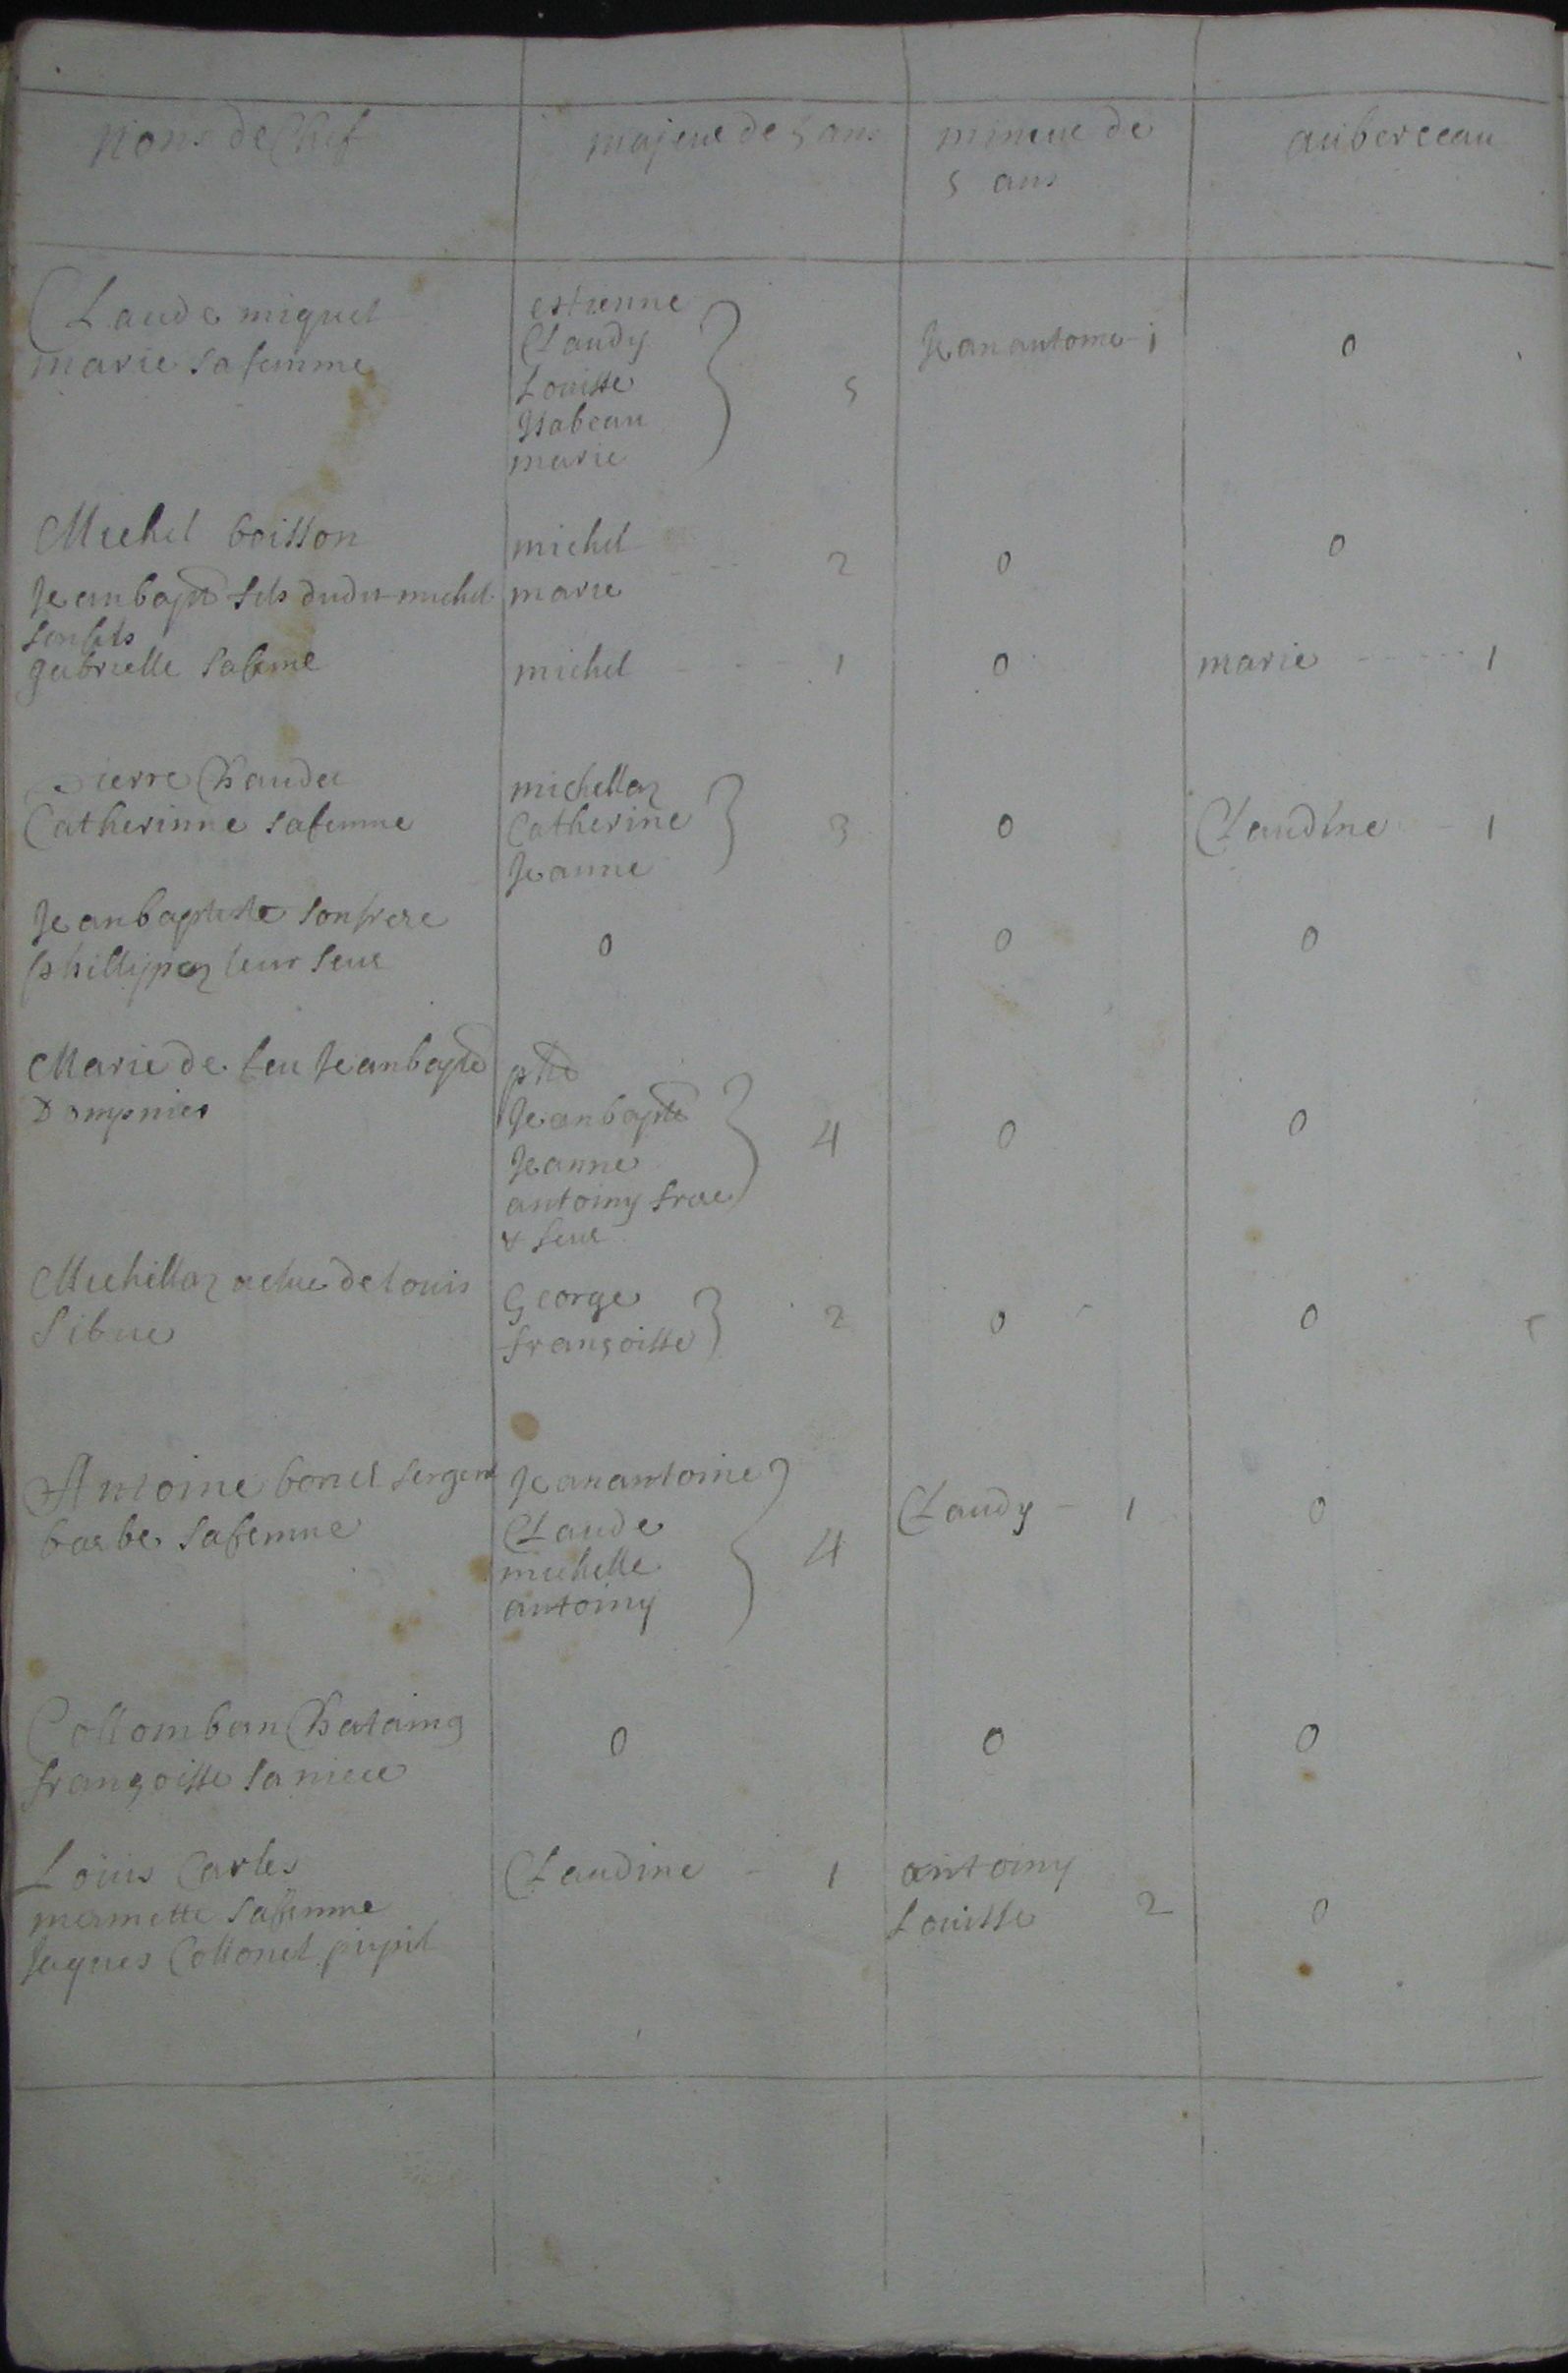 Noms de Chef majeur de 5 ans mineur de auberceau
5 ans
Claude miquet
marie safemme
estienne
Claudy
Louisse
Isabeau
marie
5
Jeanantoine 1
0
Michel boisson
Jeanbapte fils dudit michel
sonfils
gabrielle safeme
michel
marie 2
0
0
michel 1
0
marie 1
pierre
Catherinne safemme
michellaz
Catherine
Jeanne
3
0
Claudine 1
Jeanbaptiste sonfrere
phillipaz leur seur
0
0
0
Marie de feu Jeanbapte
Dompnier
Jeanbapte
Jeanne
antoiny frere
& seur
4
0
0
Michellaz de louis
Sibue
George
françoisse
2
0
0
Antoine borrel sergent
barbe safemme
Jeanantoine
Claude
michelle
antoiny
4
Claudy 1
0
Collomban
françoisse saniece
0
0
0
Louis Carles
mermette safemme
Jaques Collonel pupil
Claudine 1
antoiny
Louisse 2
0